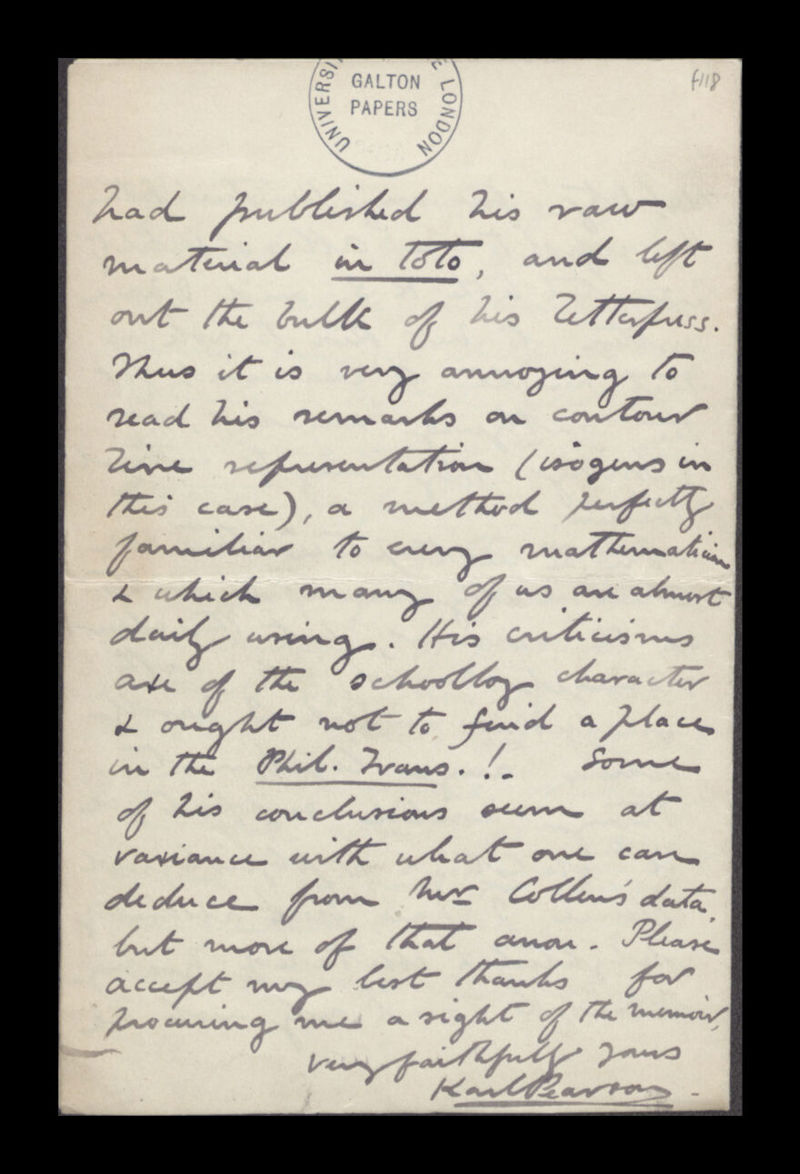 UNIVERSI E LONDON
GALTON
PAPERS
f118
had published his raw
material in toto, and left
out the bulk of his letterpress.
Thus it is very annoying to
read his remarks on contour
line representation (isogens in
this case), a method perfectly
familiar to every mathematician
& which many of us are almost
daily using. His criticisms
are of the schoolboy character
& ought not to find a place
in the Phil. Trans.!. Some
of his conclusions seem at
variance with what one can
deduce from Mr Collens' data,
but more of that anon. Please
accept my best thanks for
procuring me a sight of the memoir,
very faithfully yours
Karl Pearson.